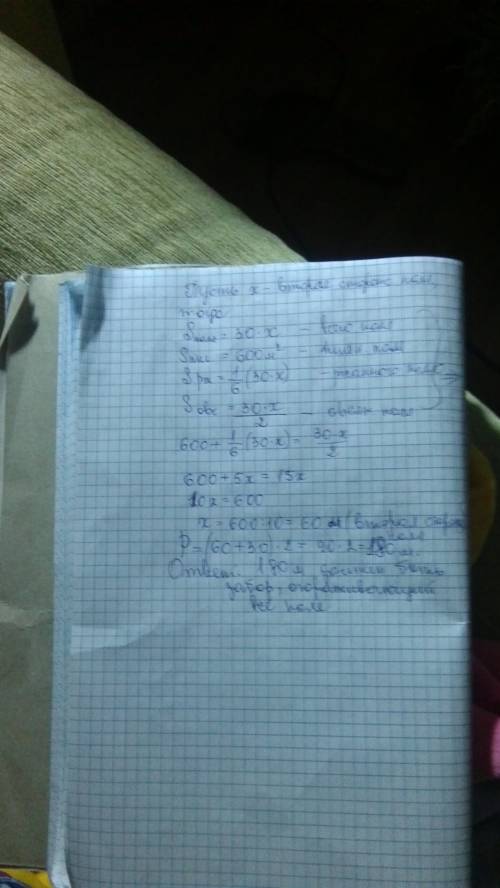 Пусть x - вторая сторона поля,
тогда
S поля = 30·x - всё поле
S = 600 м² - поля
S рж = 1/6 (30·x) - поля
S овс = 30·x/2 - поля
600 + 1/6 (30·x) = 30·x/2
600 + 5x = 15x
10x = 600
x = 600:10 = 60 м (вторая сторона поля
P = (60+30)·2 = 90·2 = 180 м.
Ответ: 180 м должен быть
забор, огораживающий
всё поле